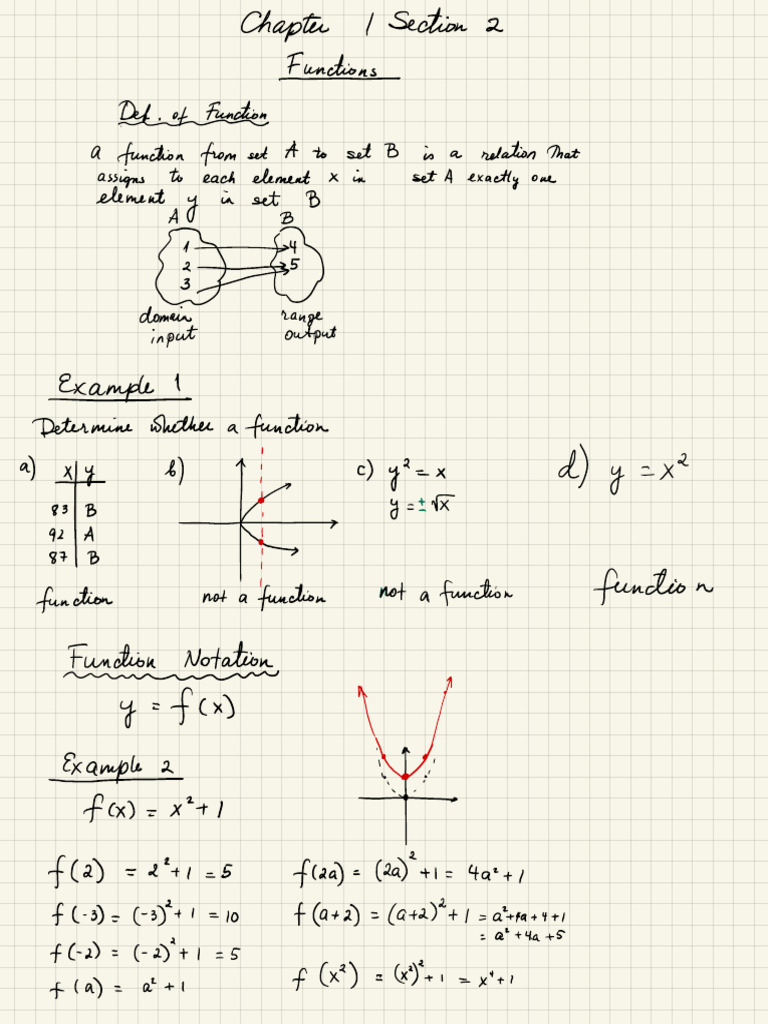 Chapter 1 Section 2
Functions
Def. of Function
a function from set A to set B is a relation that
assigns to each element x in set A exactly one
element y in set B
A B
1 4
2 5
3
domain range
input output
Example 1
Determine whether a function
a) x y
83 B
92 A
87 B
function
b)
not a function
c) y² = x
y = ±√x
not a function
d) y = x²
function
Function Notation
y = f(x)
Example 2
f(x) = x² + 1
f(2) = 2² + 1 = 5
f(-3) = (-3)² + 1 = 10
f(-2) = (-2)² + 1 = 5
f(a) = a² + 1
f(2a) = (2a)² + 1 = 4a² + 1
f(a+2) = (a+2)² + 1 = a² + 4a + 4 + 1
= a² + 4a + 5
f(x²) = (x²)² + 1 = x⁴ + 1